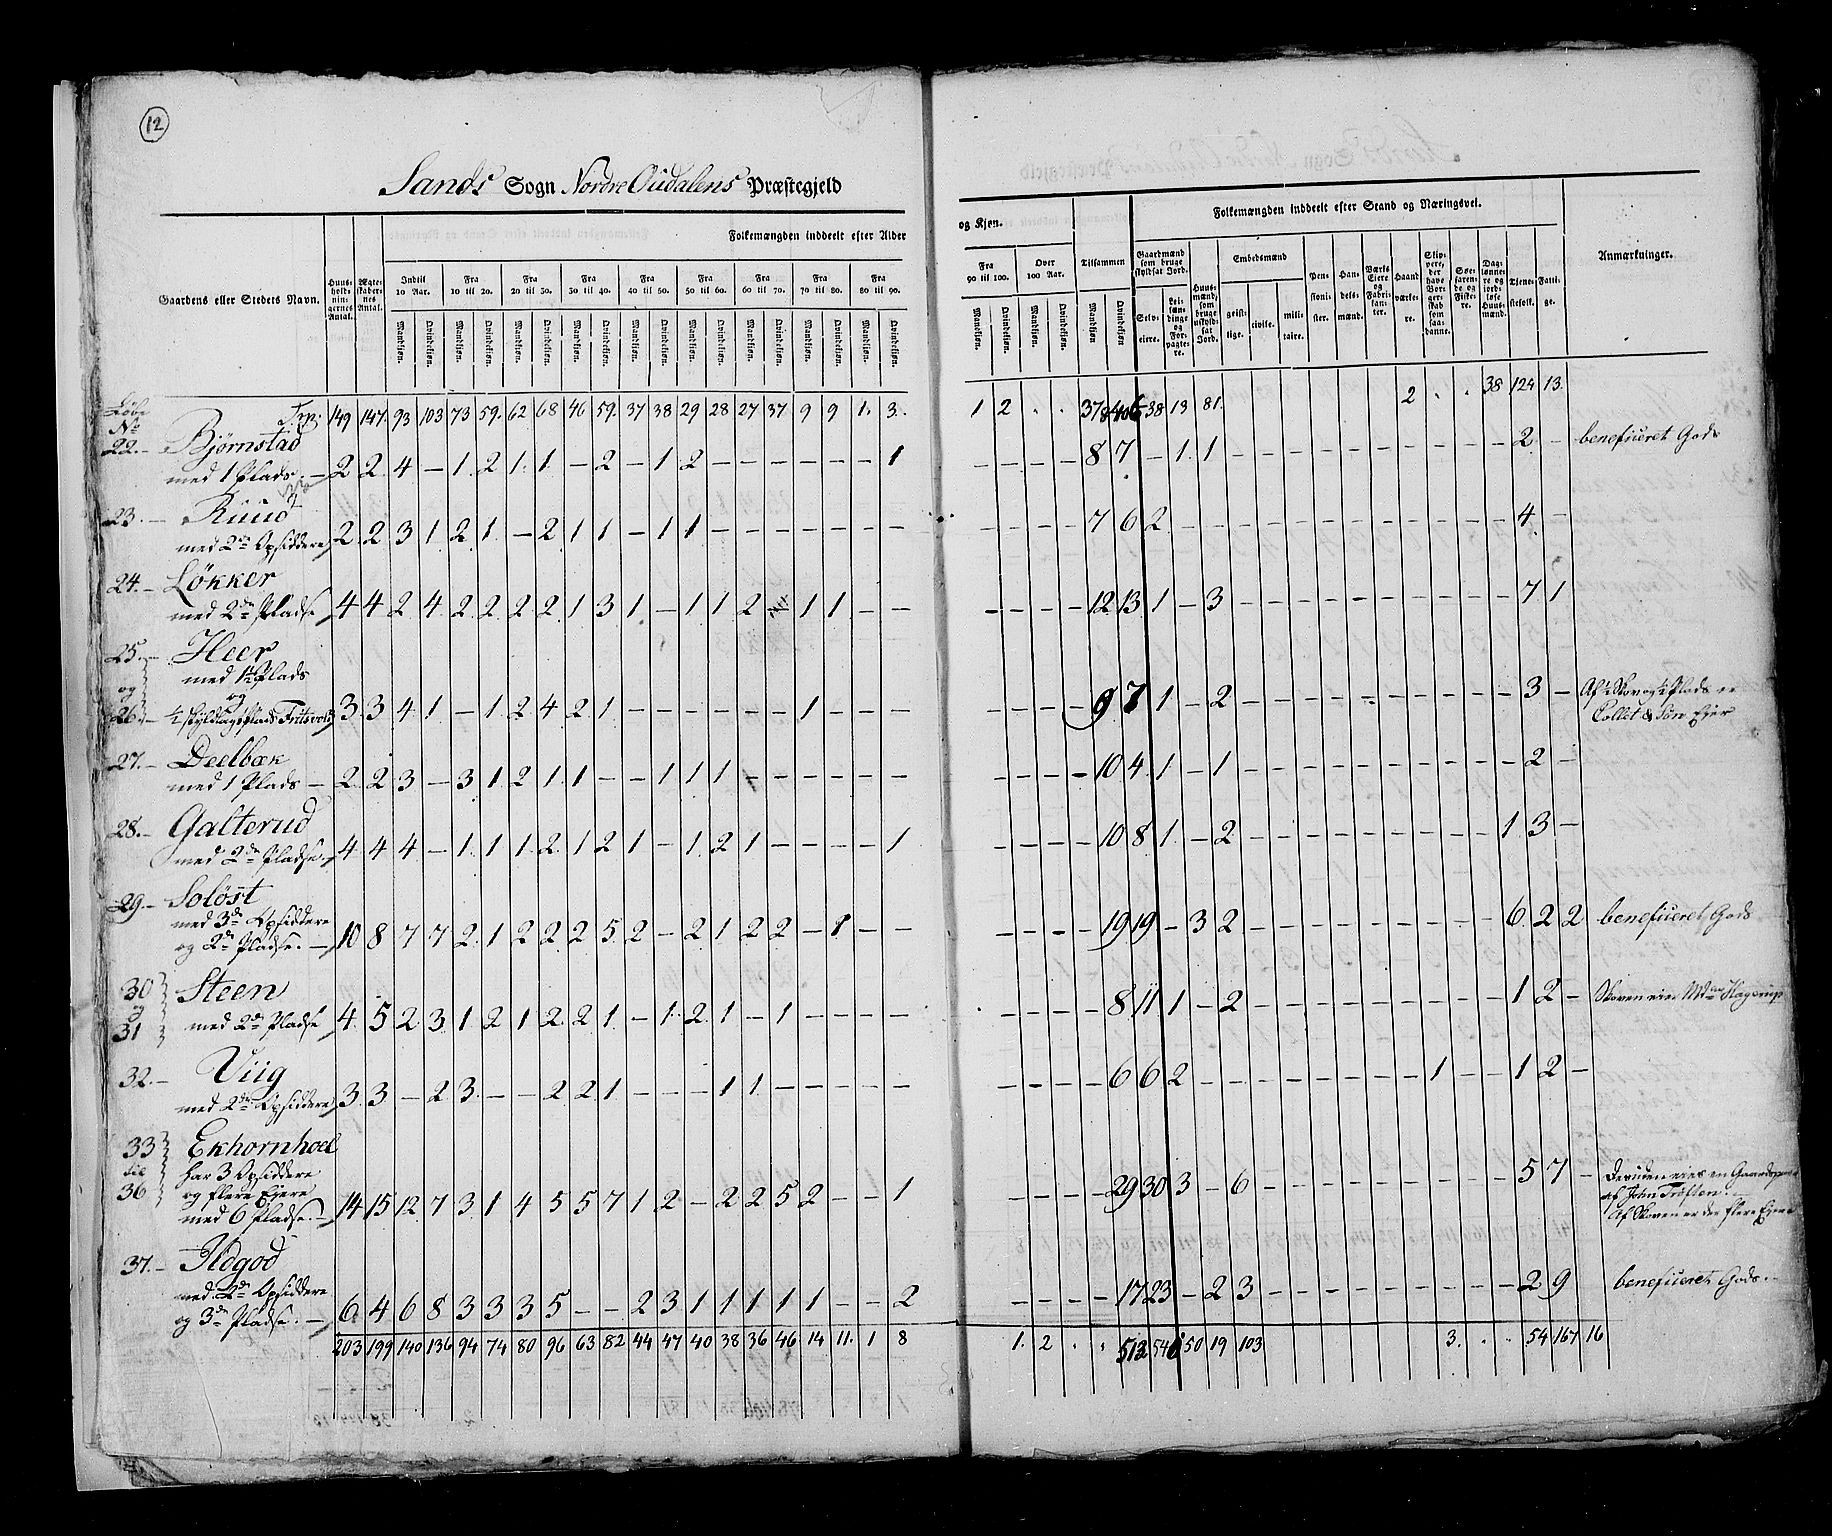 12
Sands Sogn Nordre Oudalens Præstegjeld
Gaardens eller Stedets Navn. Huus-holdnin-gernes Antal. Ægte-skaber-nes Antal. Folkemængden inddeelt efter Alder
Indtil 10 Aar. Fra 10 til 20. Fra 20 til 30. Fra 30 til 40. Fra 40 til 50. Fra 50 til 60. Fra 60 til 70. Fra 70 til 80. Fra 80 til 90.
Mandkjøn. Qvindekjøn. Mandkjøn. Qvindekjøn. Mandkjøn. Qvindekjøn. Mandkjøn. Qvindekjøn. Mandkjøn. Qvindekjøn. Mandkjøn. Qvindekjøn. Mandkjøn. Qvindekjøn. Mandkjøn. Qvindekjøn. Mandkjøn. Qvindekjøn.
og Kjøn. Tilsammen Folkemængden inddeelt efter Stand og Næringsvei. Anmærkninger.
Fra 90 til 100. Over 100 Aar. Gaardmænd som bruge skyldsat Jord. Huusmænd, som bruge uskyldsat Jord. Embedsmænd Pensionister. Handelsmænd. Værks Eiere og Fabrikanter. Haandværkere. Søefarende og Fiskere. Daglønnere og jordløse Huusmænd. Tjenestefolk. Fattige.
Mandkjøn. Qvindekjøn. Mandkjøn. Qvindekjøn. Mandkjøn. Qvindekjøn. Selveiere. Leilændinge og Forpagtere. geistlige. civile. militaire.
Løbe No Trp. 149 147. 93 103 73 59. 62 68 46 59. 37 38 29 28 27 37 9 9 1. 3. 1 2 . . 378 406 38 13 81. 2 . . 38 124 13.
22. – Bjørnstad
med 1 Plads. – 2 2 4 – 1 2 1 1 – 2 – 1 2 – – – – – – 1 – – – – 8 7 – 1 1 – – – – – – – – – – 2 – benefiueret Gods
23. – Ruud
med 2de Opsiddere 2 2 3 1 2 1 – 2 1 1 – 1 1 – – – – – – – – – – – 7 6 2 – – – – – – – – – – – – 4 –
24. – Løkker
med 2de Pladse 4 4 2 4 2 2 2 2 1 3 1 – 1 1 2 1 1 – – – – – – 12 13 1 – 3 – – – – – – – – – – 7 1
25. – Heer
med 1½ Plads
og
26. – ½ skyldlagt Plads Fritsvold 3 3 4 1 – 1 2 4 2 1 – – – – – – 1 – – – – – – – 9 7 1 – 2 – – – – – – – – – – 3 – Af ½ Skov og ½ Plads er
Collet & Søn Ejer
27. – Deelbæk
med 1 Plads – 2 2 3 – 3 1 2 1 1 – – 1 1 1 – – – – – – – – – – 10 4 1 – 1 – – – – – – – – – – 2 –
28. – Galterud
med 2de Pladse. 4 4 4 – 1 1 1 2 1 2 1 – 1 2 1 – – – – 1 – – – – 10 8 1 – 2 – – – – – – – – – 1 3 –
29. – Soløst
med 3de Opsiddere
og 2de Pladse. – 10 8 7 7 2 1 2 2 2 5 2 – 2 1 2 2 – 1 – – – – – – 19 19 – 3 2 – – – – – – – – – 6 2 2 benefiueret Gods
30 og 31 Steen
med 2de Pladse 4 5 2 3 1 2 1 2 2 1 – 1 2 1 – 1 – – – – – – – – 8 11 1 – 2 – – – – – – – – – 1 2 – Skoven eier Mdme Hagerup
32. – Viig
med 2de Opsiddere 3 3 – 2 3 – – 2 2 1 – – – 1 1 – – – – – – – – – 6 6 2 – – – – – – – – 1 – – 1 2 –
33 til 36 Ekhornhoel
har 3 Opsiddere
og flere Ejere
med 6 Pladse. – 14 15 12 7 3 1 4 5 5 7 1 2 – 2 2 5 2 – – 1 – – – – 29 30 3 – 6 – – – – – – – – – 5 7 – Deruden eies en Gaardepart
af John Trøften.
Af Skoven er der flere Ejere
37. – Ildgod
med 2de Opsiddere
og 3de Pladse. – 6 4 6 8 3 3 3 5 – – 2 3 1 1 1 1 1 – – 2 – – – – 17 23 – 2 3 – – – – – – – – – 2 9 benefiueret Gods.
203 199 140 136 94 74 80 96 63 82 44 47 40 38 36 46 14 11. 1 8 1. 2 . . 513 540 50 19 103 3. . . 54 167 16